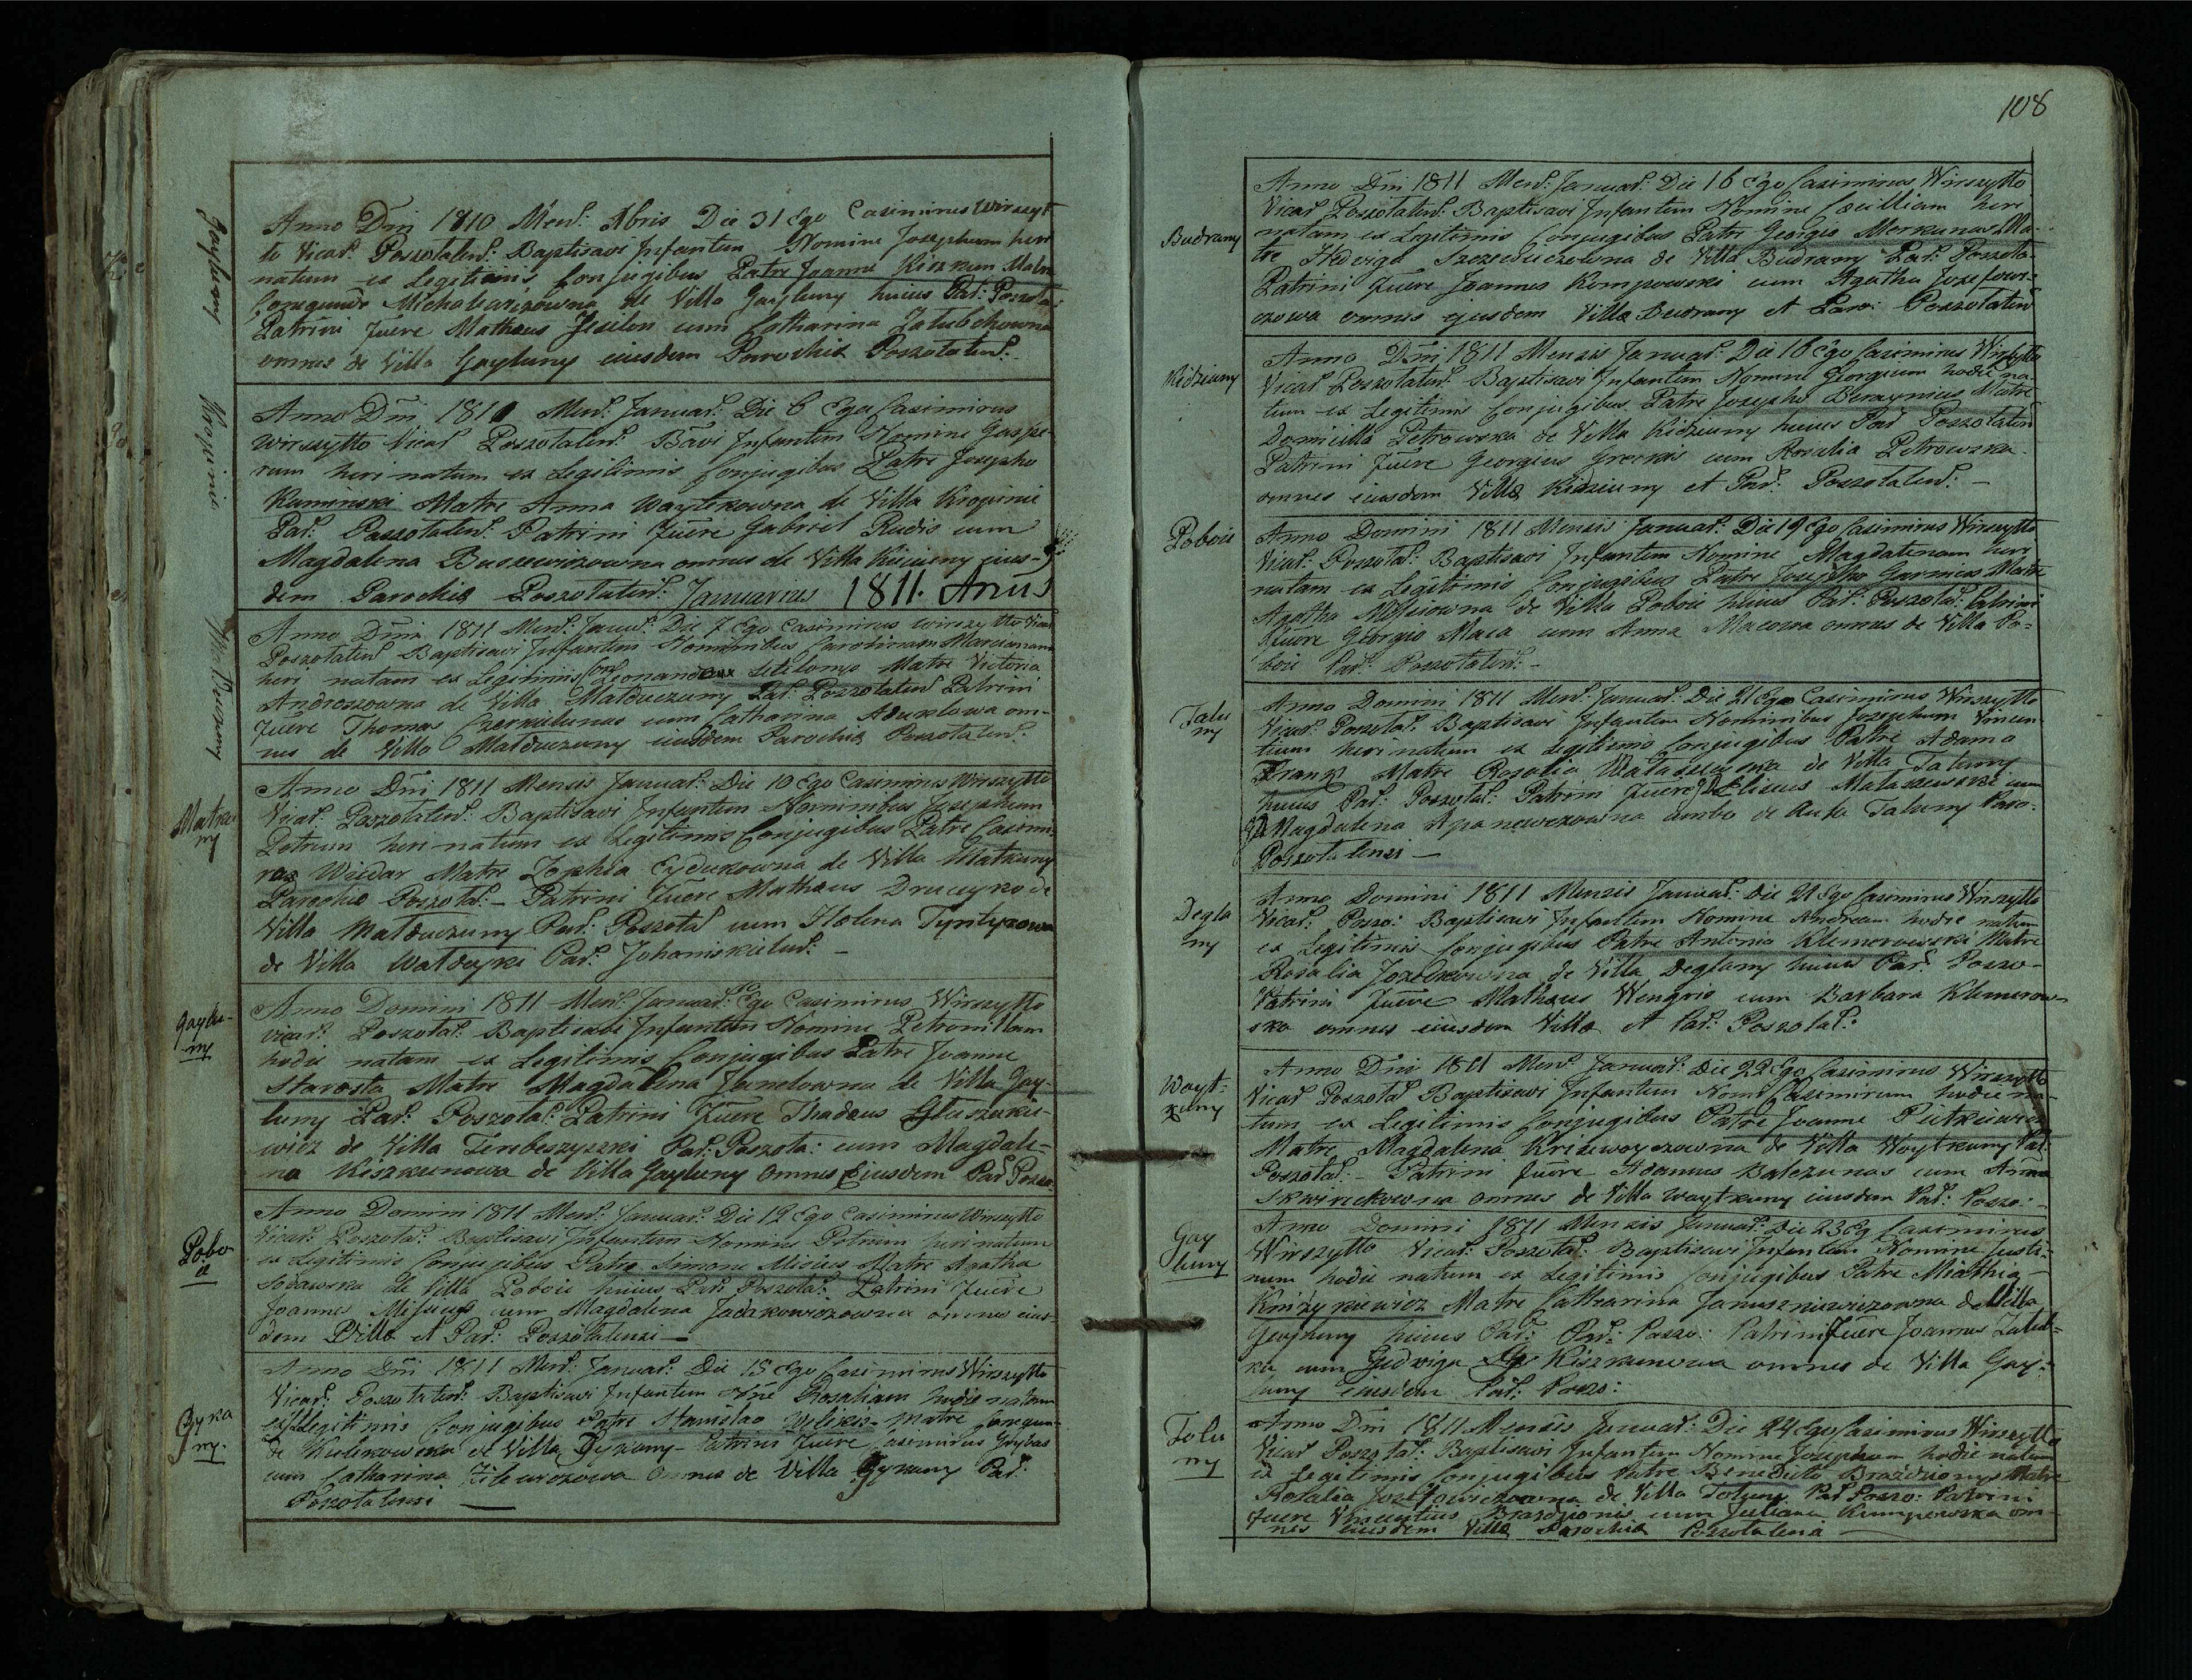 Gayluny
Anno Dni 1810 Mens: Xbris Die 31 Ego Casimirus Wirszyt
to Vicar: Poszolaten: Baptisavi Infantem Nomine Josephum heri
natum ex Legitimis Conjugibus Patre Joanne Kiszkun Matre
Michalewiczowna de Villa Gayluny huius Par: Poszola
Patrini fuere Mathaus cum Catharina
omnes de Villa Gayluny eiusdem Parochia Poszolaten:
Kropinie
Anno Dni 1811 Mens: Januar: Die 6 Ego Casimirus
Wirszytto Vicar Poszolaten: Bavi Infantem Nomine Gaspe-
rum heri natum ex Legitimis Conjugibus Patre Josepho
Kaminski Matre Anna Waytekowna de Villa Kropinie
Par: Poszolaten: Patrini fuere Gabriel Rudis cum
Magdalena omnes de Villa eius-
dem Parochia Poszolaten: Januarius 1811. Anus
Anno Dni 1811 Mens: Januar: Die 7 Ego Casimirus Wirszytto Vicar
Poszolaten Baptisavi Infantem Nominibus Marcianam
heri natam ex Legitimis Conj Leonardo Matre Victoria
Androszowna de Villa Malduczuny Par: Poszolaten Patrini
fuere Thomas cum Catharina om-
nes de Villa Malduczuny eiusdem Parochia Poszolaten:
Matku
ny
Anno Dni 1811 Mensis Januar: Die 10 Ego Casimirus Wirszytto
Vicar: Poszolaten: Baptisavi Infantem Nominibus Josephum
Petrum heri natum ex Legitimis Conjugibus Patre Casimi-
ras Widar Matre Zophia Eydukowna de Villa Matkuny
Parochia Poszola: – Patrini fuere Mathaus Druceyko de
Villa Malduczuny Par: Poszola cum Helena
de Villa Waldeyki Par: Johaniskielen: –
Gaylu-
ny
Anno Domini 1811 Mens: Januar: 10 Ego Casimirus Wirszytto
vicar: Poszola: Baptisavi Infantem Nomine Petronillam
hodie natam ex Legitimis Conjugibus Patre Joanne
Starosta Matre Magdalena Janelowna de Villa Gay-
luny Par: Poszola: Patrini fuere Thadeus
wicz de Villa Terebeszyszki Par: Poszola: cum Magdale-
na Kiszkunowa de Villa Gayluny Omnes Eiusdem Par Poszo:
Pobo
ie
Anno Domini 1811 Mens: Januar: Die 12 Ego Casimirus Wirszytto
Vicar: Poszola: Baptisavi Infantem Nomine Petrum heri natum
ex Legitimis Conjugibus Patre Simone Misius Matre Agatha
de Villa Poboie huius Par: Poszola: Patrini fuere
Joannes Misius cum Magdalena omnes eius-
dem Villa et Par: Poszolatensi –
Gyka
ny.
Anno Dni 1811 Mens: Januar: Die 15 Ego Casimirus Wirszytto
Vicar: Poszolaten: Baptisavi Infantem Nne Rosaliam hodie natam
ex Legitimis Conjugibus Patre Stanislao Welikis – Matre
de Kulikowska de Villa Gykany – Patrini fuere Casimirus Grybas
cum Catharina omnes de Villa Gykany Par:
Poszolatensi –
108
Budrany
Anno Dni 1811 Mens: Januar: Die 16 Ego Casimirus Wirszytto
Vicar Poszolaten: Baptisavi Infantem Nomine Caecilliam heri
natam ex Legitimis Conjugibus Patre Georgio Merkunas Ma-
tre Hedviga de Villa Budrany Par: Poszola-
Patrini fuere Joannes Kompowski cum Agatha Jozefowi-
czowa omnes ejusdem Villa Budrany et Paro: Poszolaten
Kidziuny
Anno Dni 1811 Mensis Januar: Die 16 Ego Casimirus Wirszytto
Vicar Poszolaten: Baptisavi Infantem Nomine Georgium hodie na-
tum ex Legitimis Conjugibus Patre Josepho Matre
Domicilla Petrowska de Villa Kidziuny huius Par Poszolaten
Patrini fuere Georgius cum Rosalia Petrowska
omnes eiusdem Villa Kidziuny et Par: Poszolaten: –
Poboie
Anno Domini 1811 Mensis Januar: Die 19 Ego Casimirus Wirszytto
Vicar: Poszola: Baptisavi Infantem Nomine Magdalenam heri
natam ex Legitimis Conjugibus Patre Josepho Garnius Matre
Agatha Misiowna de Villa Poboie huius Par: Poszola: Patrini
fuere Georgio Maca cum Anna Macowa omnes de Villa Po=
boie Par: Poszolaten: –
Talu
ny
Anno Domini 1811 Mens: Januar: Die 21 Ego Casimirus Wirszytto
Vicar: Poszola: Baptisavi Infantem Nominibus Josephum Vincen-
tium heri natum ex Legitimis Conjugibus Patre Adamo
Frank Matre Rosalia de Villa Taluny
huius Par: Poszola: Patrini fuere Mataszewski cum
Magdalena ambo de Aula Taluny Paro:
Poszolatensi –
Deglu
ny
Anno Domini 1811 Mensis Januar: Die 21 Ego Casimirus Wirszytto
Vicar: Poszo: Baptisavi Infantem Nomine Andream hodie natum
ex Legitimis Conjugibus Patre Antonio Klimorowski Matre
Rosalia de Villa Degluny huius Par: Poszo-
Patrini fuere Mathaus Wengris cum Barbara Klimorow-
ska omnes eiusdem Villa et Par: Poszola:
Wayt-
kuny
Anno Dni 1811 Mens: Januar: Die 22 Ego Casimirus Wirszytto
Vicar Poszola Baptisavi Infantem Nom Casimirum hodie na-
tum ex Legitimis Conjugibus Patre Joanne Pietkiewicz
Matre Magdalena Krizewoyczowna de Villa Waytkuny Par:
Poszola: – Patrini fuere Adamus Balczunas cum Anna
Skwireckowna omnes de Villa Waytkuny eiusdem Par: Poszo: –
Gay
luny
Anno Domini 1811 Mensis Januar: Die 23 Eg Casimirus
Wirszytto Vicar: Poszola: Baptisavi Infantem Nomine Justi-
num hodie natum ex Legitimis Conjugibus Patre Mathia
Knizykiewicz Matre Catharina Januszkiewiczowna de Villa
Gayluny huius Par: Par: Poszo: Patrini fuere Joannes Zalub-
ka cum Gedwiga Kiszkunowa omnes de Villa Gay-
luny Eiusdem Par: Poszo:
Tolu
ny
Anno Dni 1811 Mensis Januar: Die 24 Ego Casimirus Wirszytto
Vicar Poszola: Baptisavi Infantem Nomine Josephum hodie natum
ex Legitimis Conjugibus Patre Benedicto Brazdzionys Matre
Rosalia Jozefowiczowna de Villa Toluny Par Poszo: Patrini
fuere Vincentius Brazdzionis cum Juliana Kumpowska om-
nes eiusdem Villa Parochia Poszolatensi –